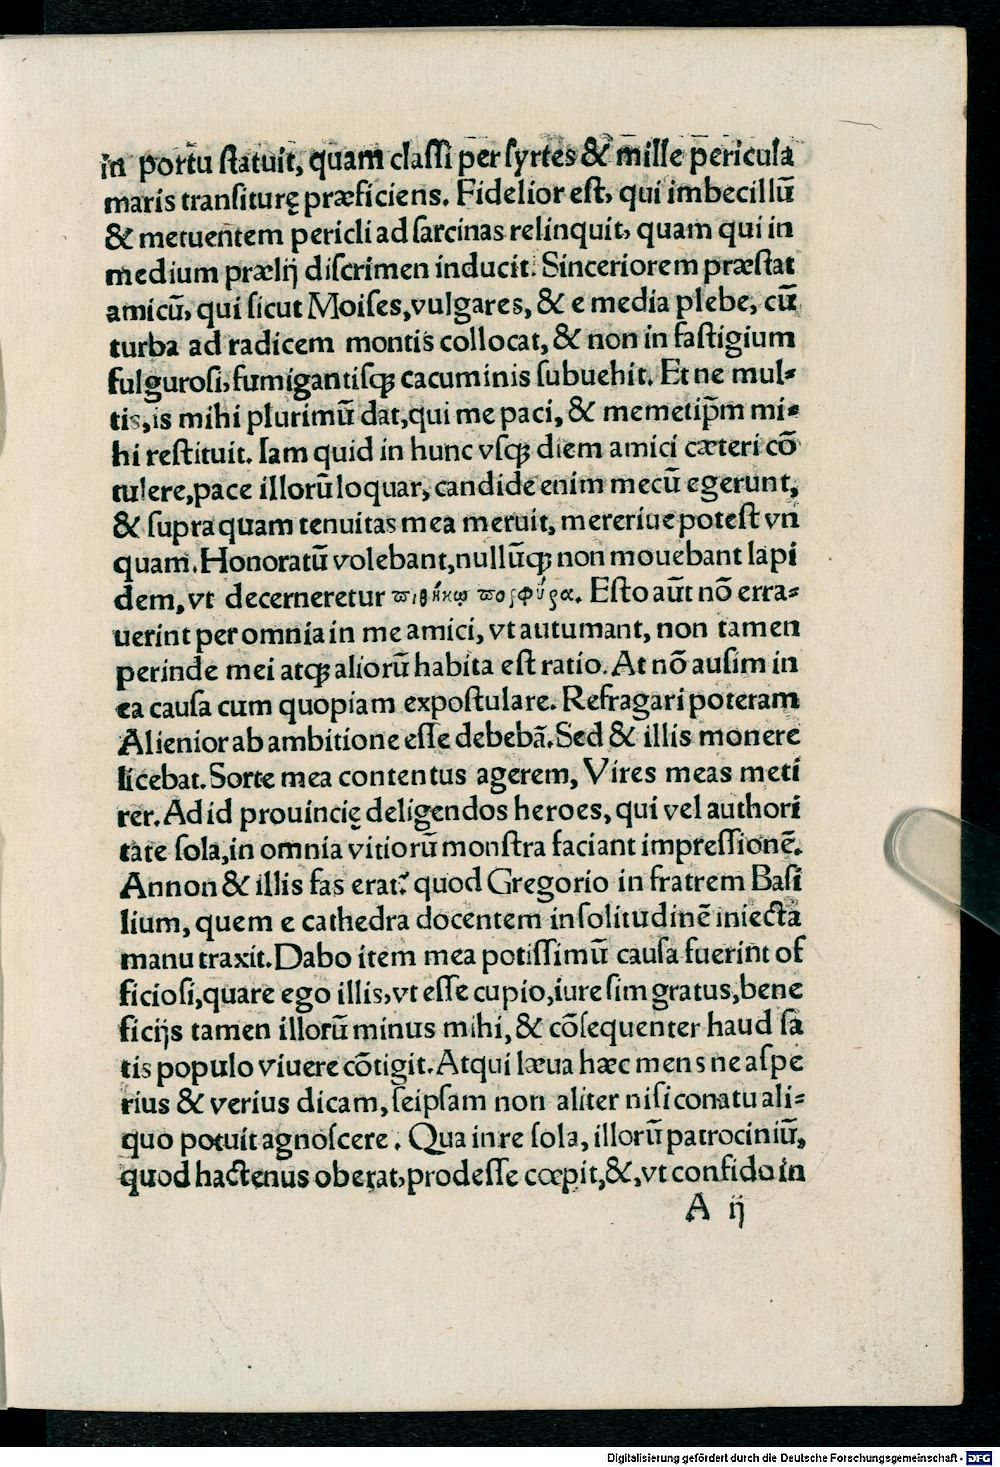 in portu ſtatuit, quam claſſi per ſyrtes & mille pericula
maris tranſiturę præficiens. Fidelior eſt, qui imbecillū
& metuentem pericli ad ſarcinas relinquit, quam qui in
medium prælij diſcrimen inducit. Sinceriorem præſtat
amicū, qui ſicut Moiſes, vulgares, & e media plebe, cū
turba ad radicem montis collocat, & non in faſtigium
fulguroſi, fumigantiſqꝫ cacuminis ſubuehit. Et ne mul⸗
tis, is mihi plurimū dat, qui me paci, & memetip̄m mi⸗
hi reſtituit. Iam quid in hunc vſqꝫ diem amici cæteri cō
tulere, pace illorū loquar, candide enim mecū egerunt,
& ſupra quam tenuitas mea meruit, mereriue poteſt vn
quam. Honoratū volebant, nullūqꝫ non mouebant lapi
dem, vt decerneretur πιθήκῳ πορφύρα. Eſto aūt nō erra⸗
uerint per omnia in me amici, vt autumant, non tamen
perinde mei atqꝫ aliorū habita eſt ratio. At nō auſim in
ea cauſa cum quopiam expoſtulare. Refragari poteram
Alienior ab ambitione eſſe debebā. Sed & illis monere
licebat. Sorte mea contentus agerem, Vires meas meti
rer. Ad id prouincię deligendos heroes, qui vel authori
tate ſola, in omnia vitiorū monſtra faciant impreſſionē.
Annon & illis fas erat? quod Gregorio in fratrem Baſi
lium, quem e cathedra docentem in ſolitudinē iniecta
manu traxit. Dabo item mea potiſſimū cauſa fuerint of
ficioſi, quare ego illis, vt eſſe cupio, iure ſim gratus, bene
ficijs tamen illorū minus mihi, & cōſequenter haud ſa
tis populo viuere cōtigit. Atqui læua hæc mens ne aſpe
rius & verius dicam, ſeipſam non aliter niſi conatu ali⸗
quo potuit agnoſcere. Qua in re ſola, illorū patrociniū,
quod hactenus oberat, prodeſſe cœpit, &, vt confido in
A ij
Digitalisierung gefördert durch die Deutsche Forschungsgemeinschaft - DFG